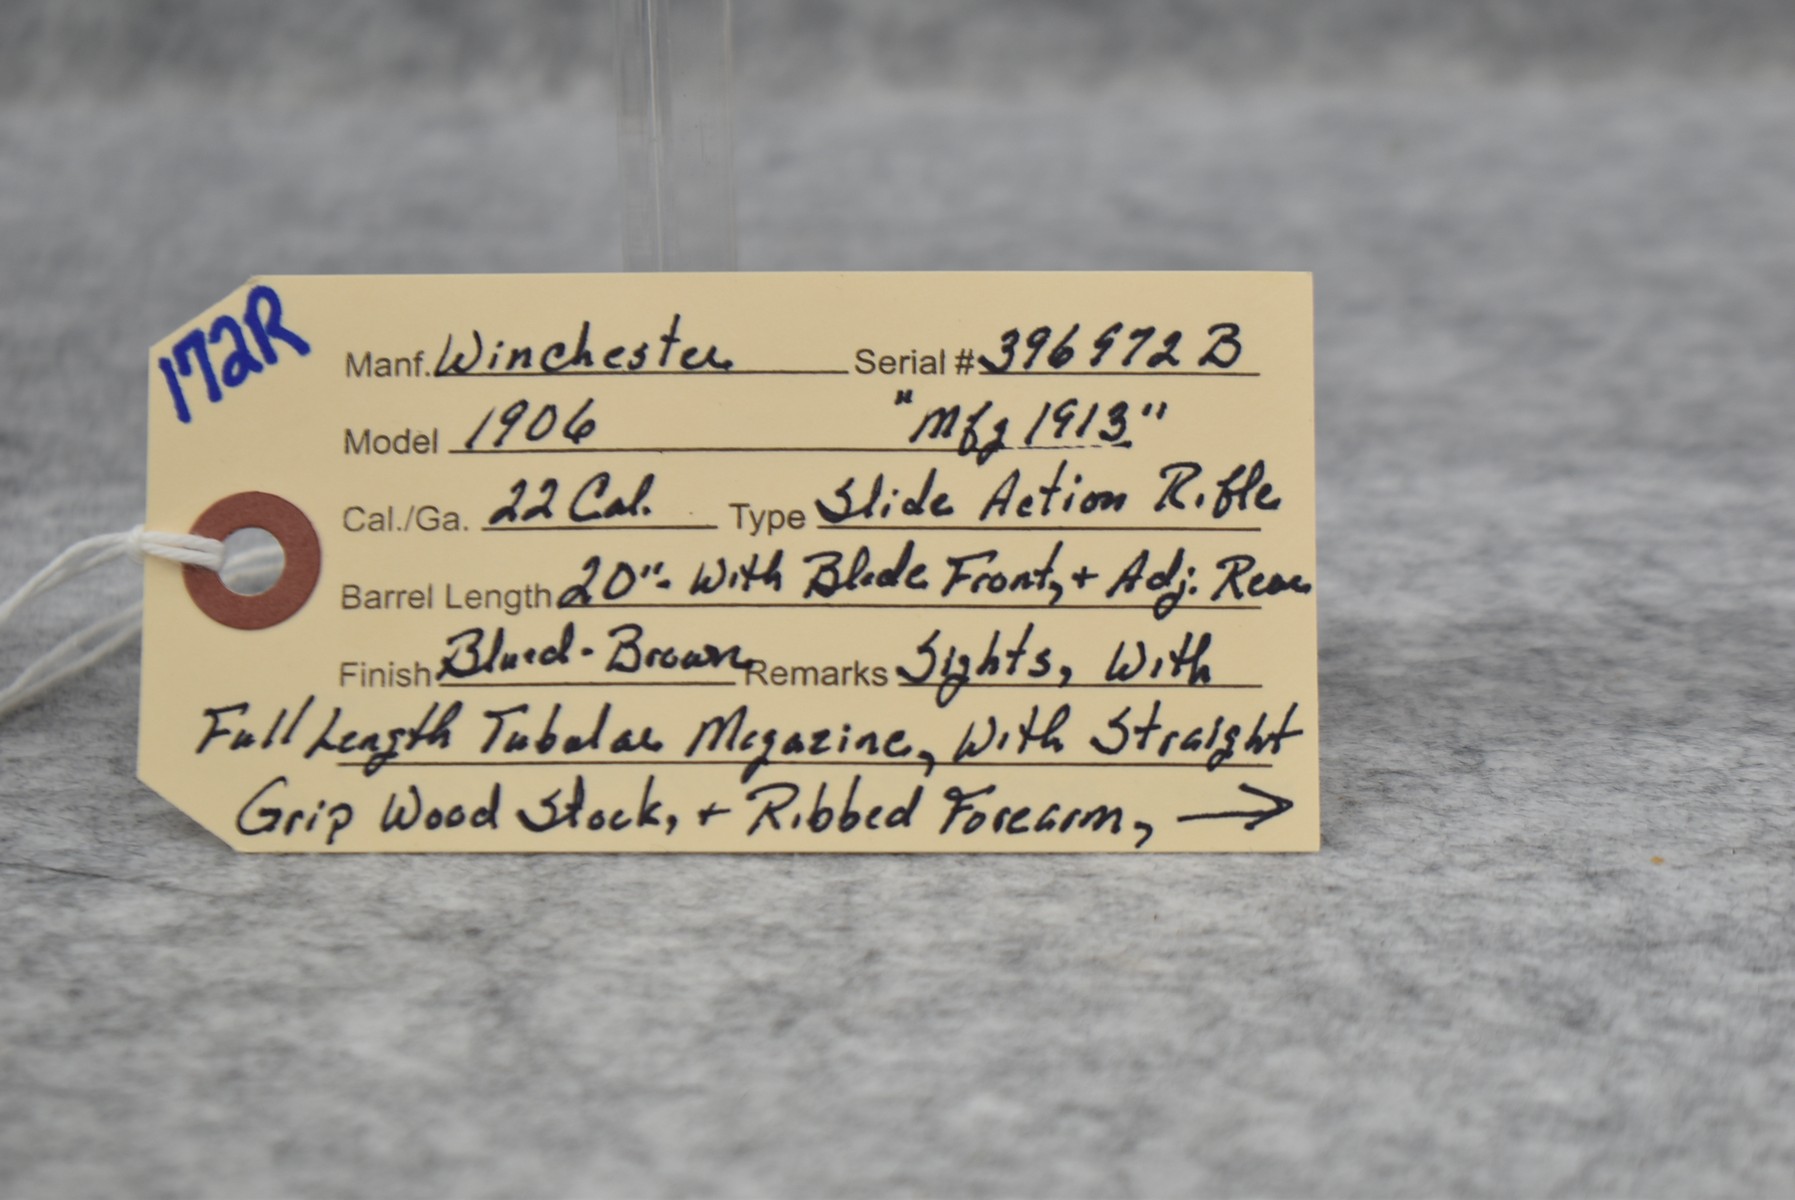 172R
Manf. Winchester Serial # 396972 B
Model 1906 "Mfg 1913"
Cal./Ga. 22 Cal. Type Slide Action Rifle
Barrel Length 20"- With Blade Front, + Adj. Rear
Finish Blued-Brown Remarks Sights, With
Full Length Tubular Magazine, With Straight
Grip Wood Stock, + Ribbed Forearm, →